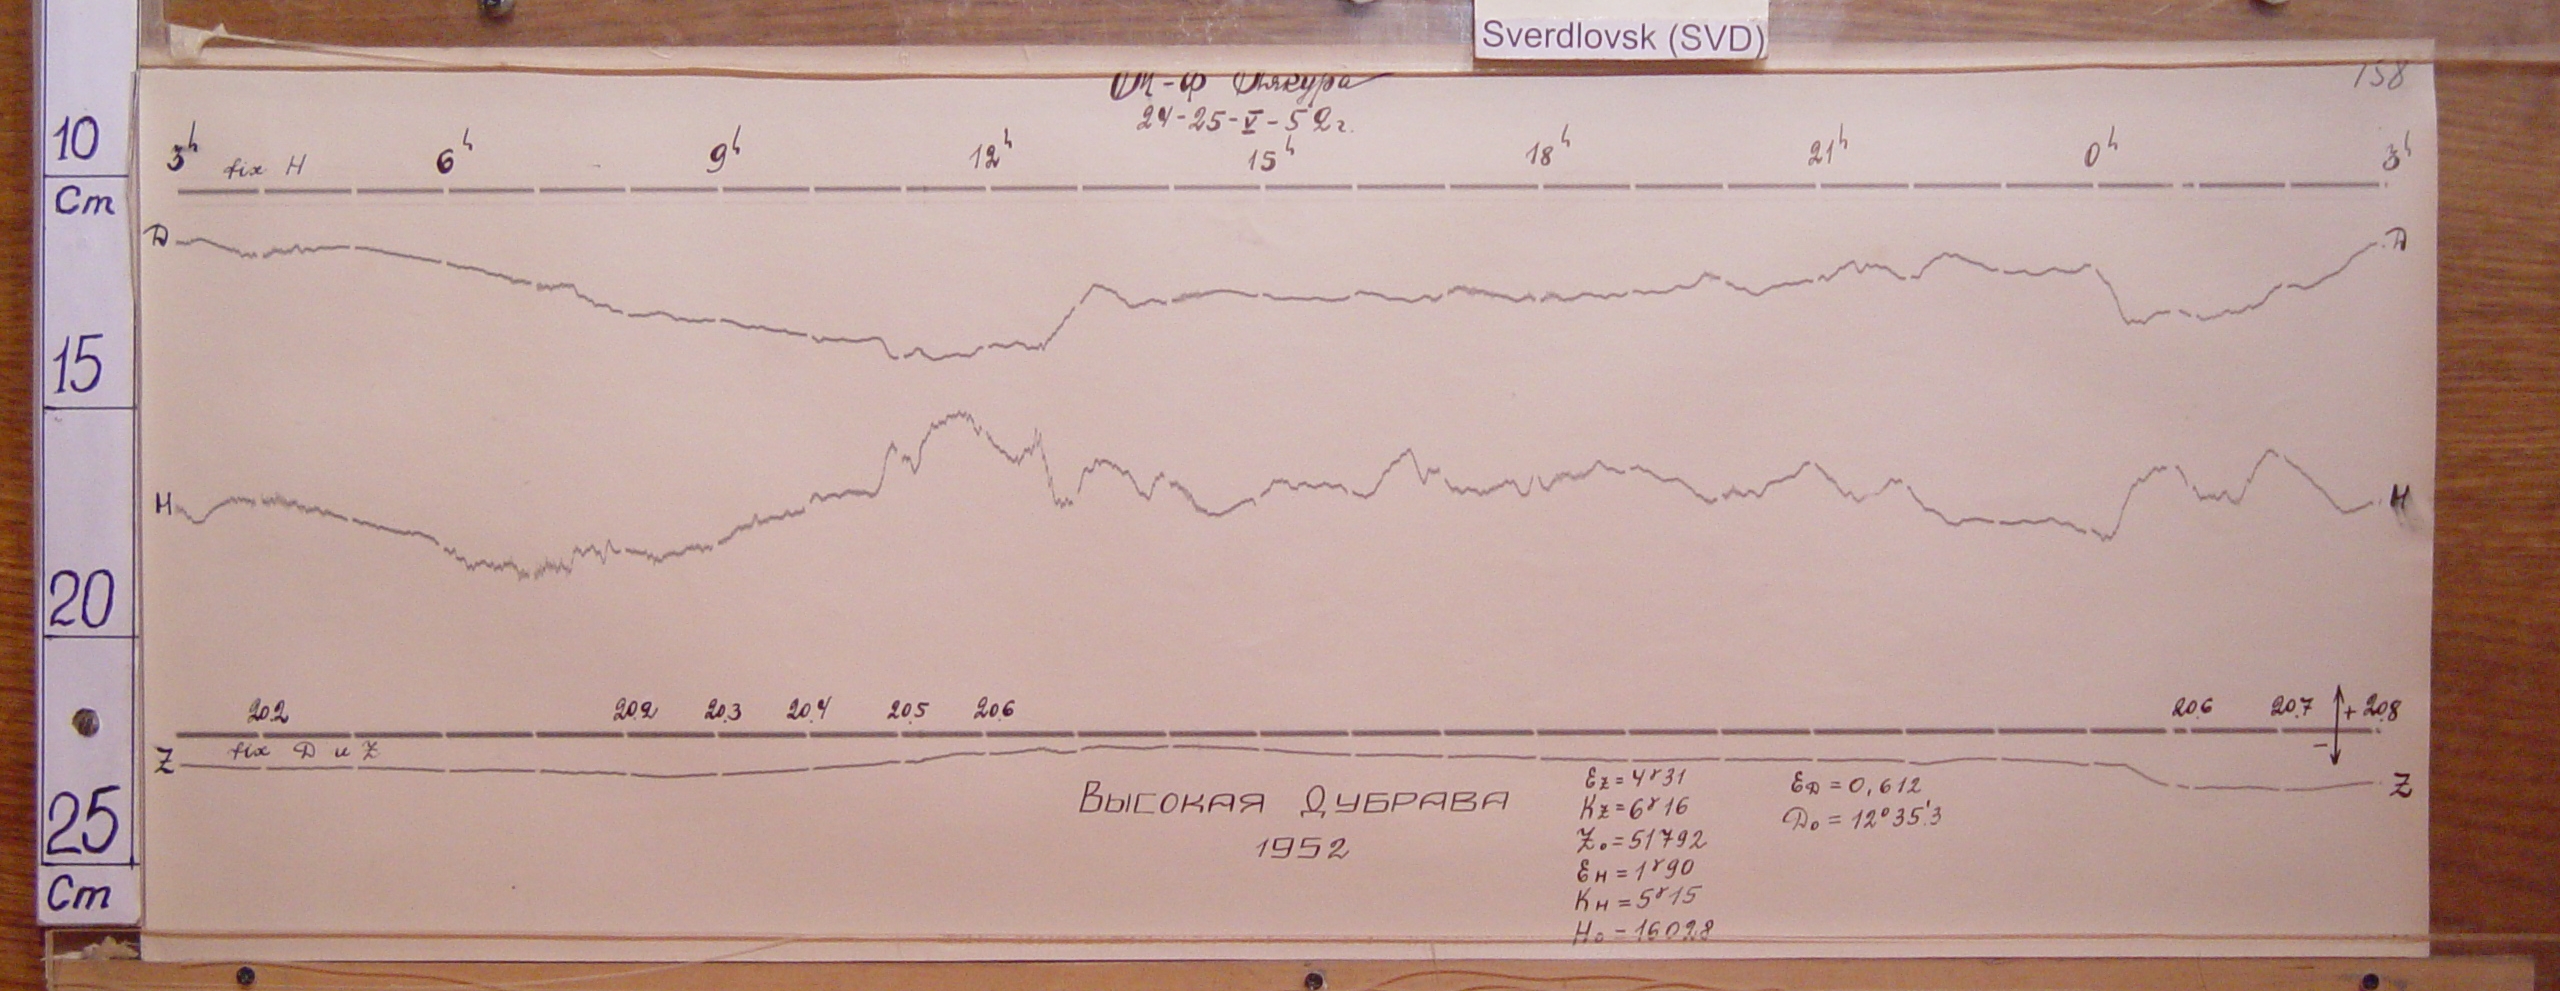 Sverdlovsk (SVD)
158
24-25-V-52г.
10
Cm
15
20
25
Cm
3h 6h 9h 12h 15h 18h 21h 0h 3h
fix H
D D
H H
20.2 20.2 20.3 20.4 20.5 20.6 20.6 20.7 + 20.8
−
fix D и Z
Z Z
ВЫСОКАЯ ДУБРАВА
1952
Ez = 4γ31
Kz = 6γ16
Z₀ = 51792
EH = 1γ90
KH = 5γ15
H₀ = 16028
ED = 0,612
D₀ = 12°35'.3